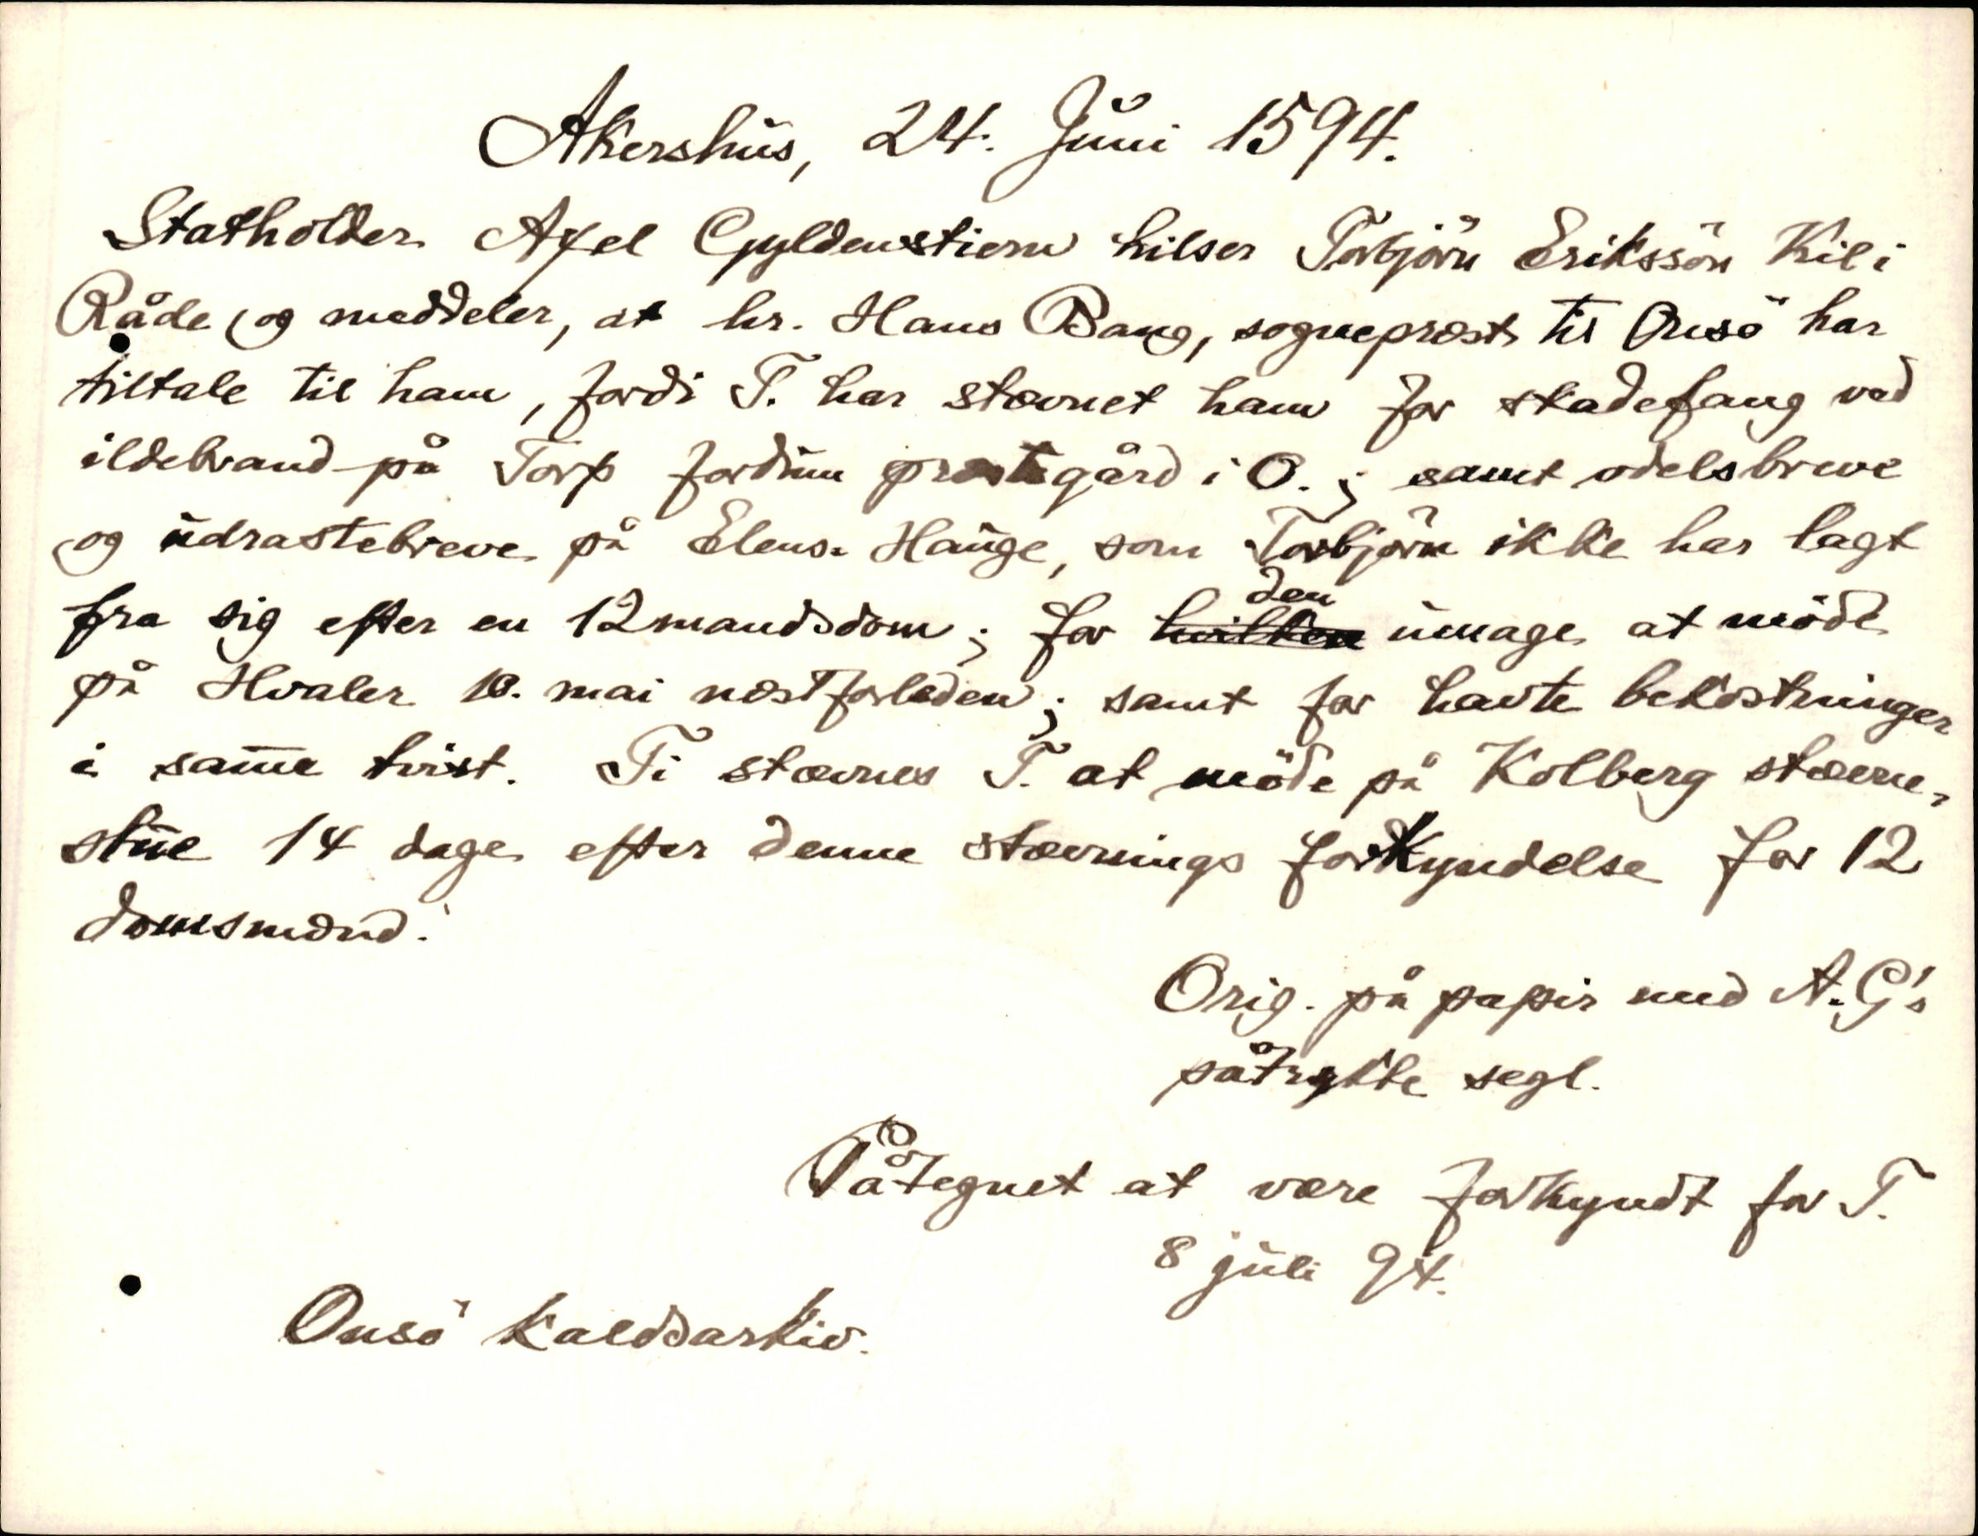 Akershus, 24. Juni 1594.
Statholder Axel Gyldenstiern hilser Torbjörn Erikssön Kil i
Råde og meddeler, at hr. Hans Bang, sognepræst til Onsö har
tiltale til ham, fordi T. har stævnet ham for skadefang ved
ildebrand på Torp fordum præstegård i O.; samt odelsbreve
og udrastebreve på Elens Hauge, som Torbjörn ikke har lagt
fra sig efter en 12mandsdom; for den umage at möde
på Hvaler 10. mai næstforleden; samt for havte bekostninger
i samme tvist. Ti stævnes T. at möde på Kolberg stævne-
stue 14 dage efter denne stævnings forkyndelse for 12
domsmænd.
Orig. på papir med A. G's
påtrykte segl.
Påtegnet at være forkyndt for T.
8 juli 94.
Onsö kaldsarkiv.